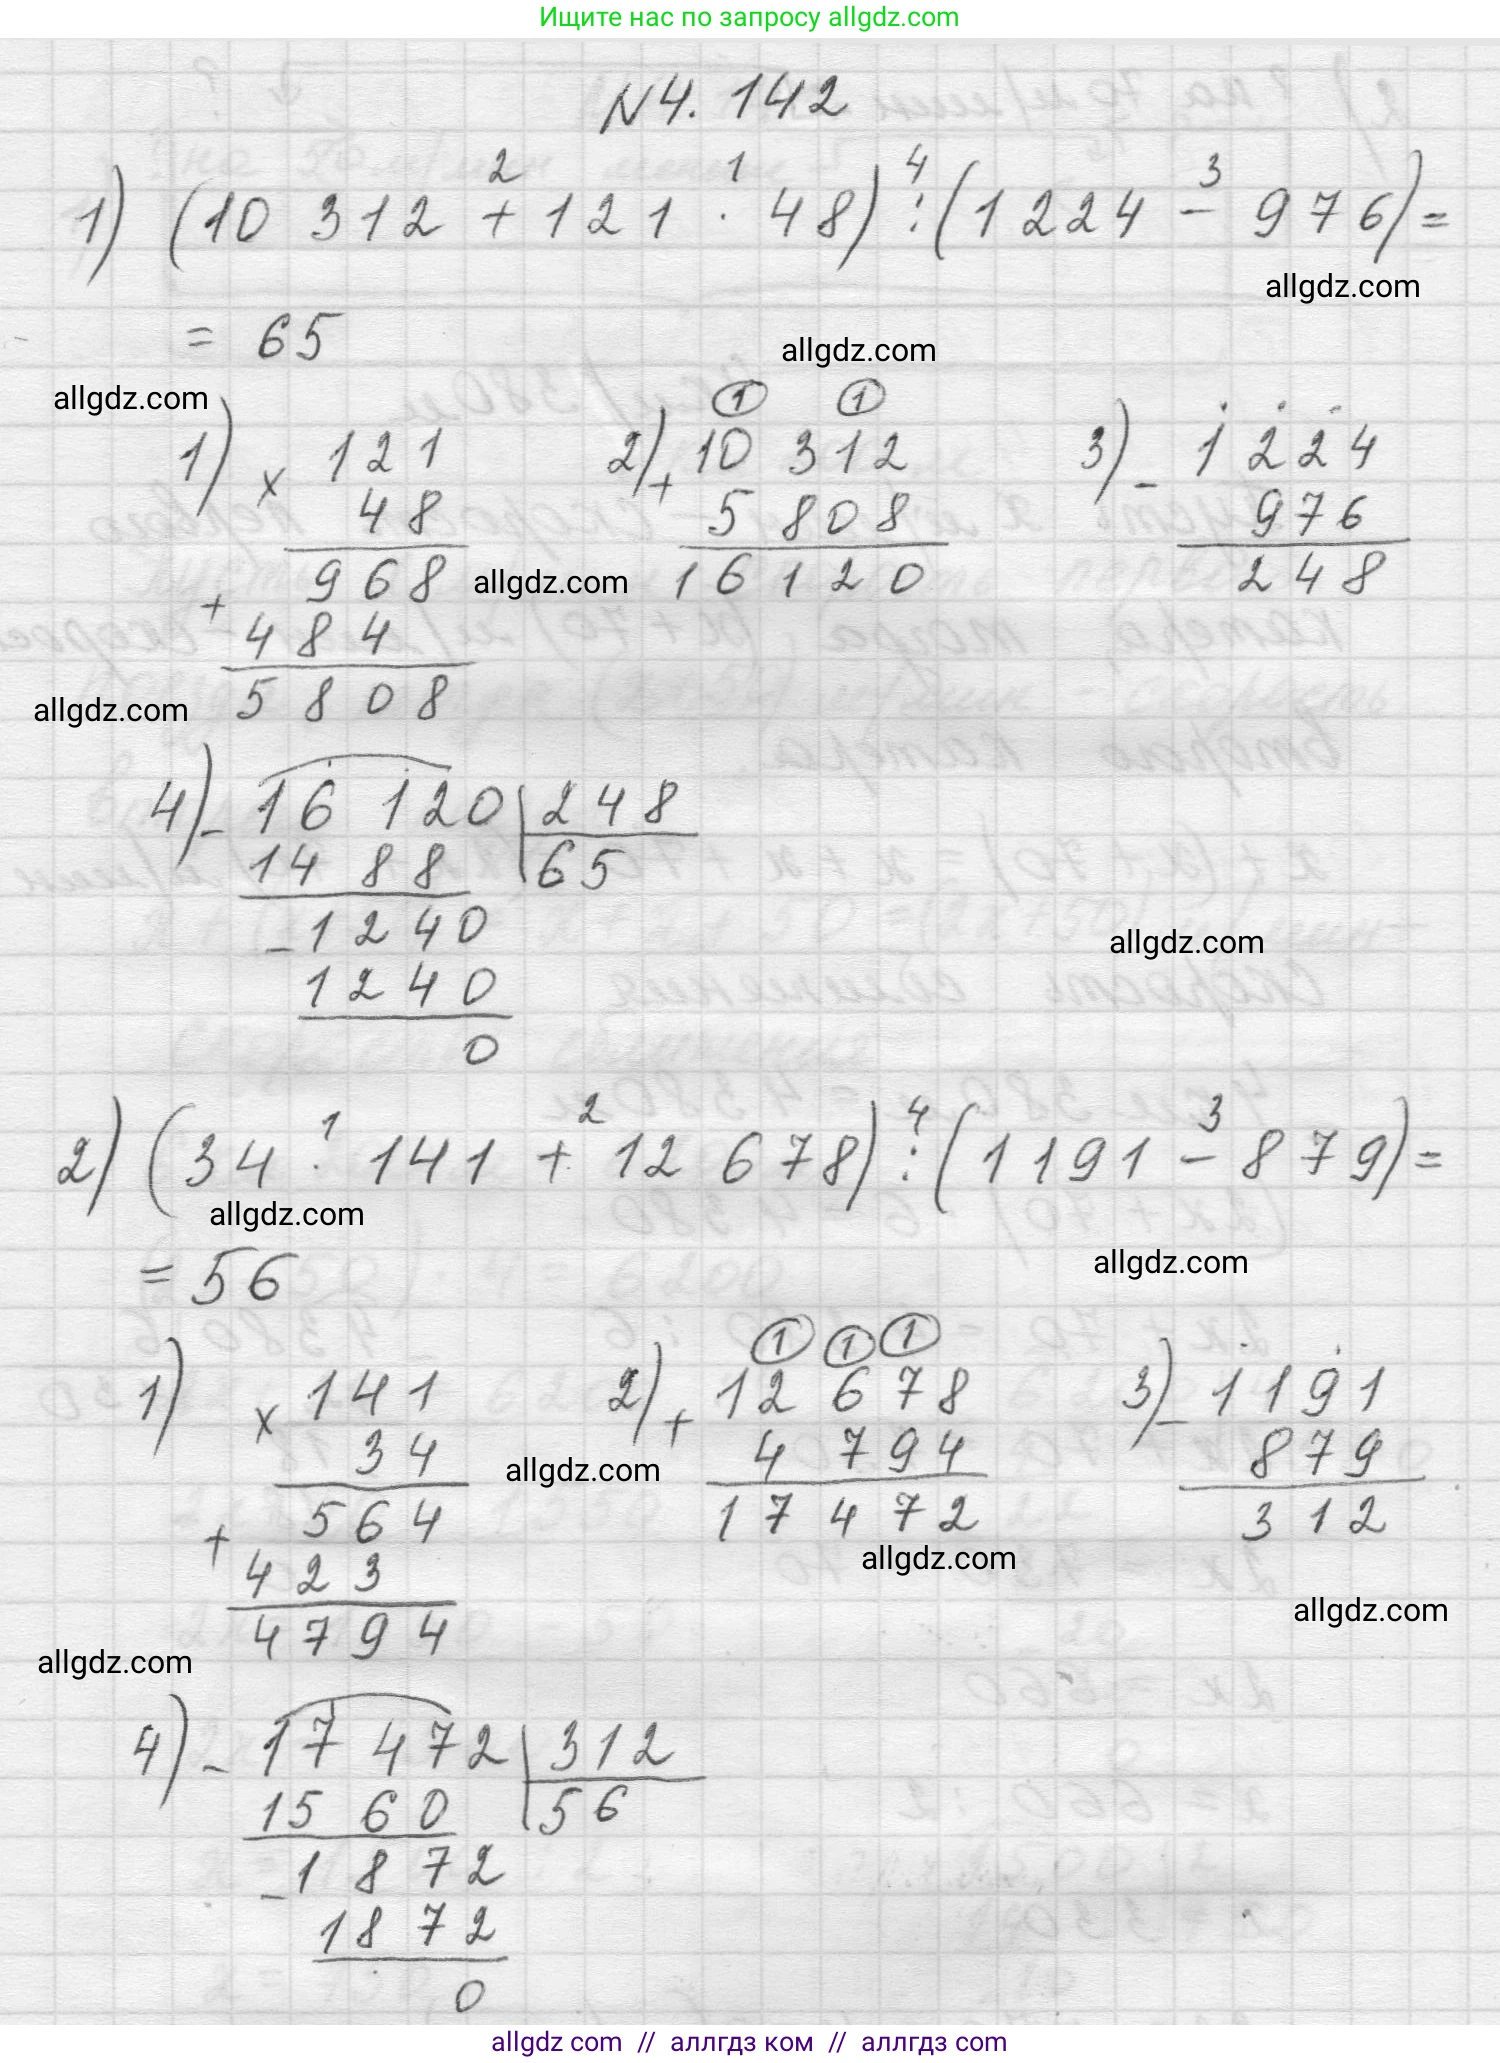 Ищите нас по запросу allgdz.com
№4. 142
2 1 4 3
1) (10 312 + 121 · 48) : (1224 - 976) =
allgdz.com
= 65
allgdz.com
allgdz.com
① ①
1) × 121 2) + 10 312 3) - 1224
48 5 808 976
968 16120 248
allgdz.com
+ 484
5808
allgdz.com
4) - 16 120 | 248
14 88 | 65
- 1240
allgdz.com
1240
0
1 2 4 3
2) (34 · 141 + 12 678) : (1191 - 879) =
allgdz.com
allgdz.com
= 56
① ① ①
1) × 141 2) + 12 678 3) - 1191
34 4 794 879
allgdz.com
564 17 472 312
allgdz.com
+ 423
allgdz.com
4794
allgdz.com
4) - 17 472 | 312
15 60 | 56
- 1872
1872
0
allgdz com // аллгдз ком // аллгдз com